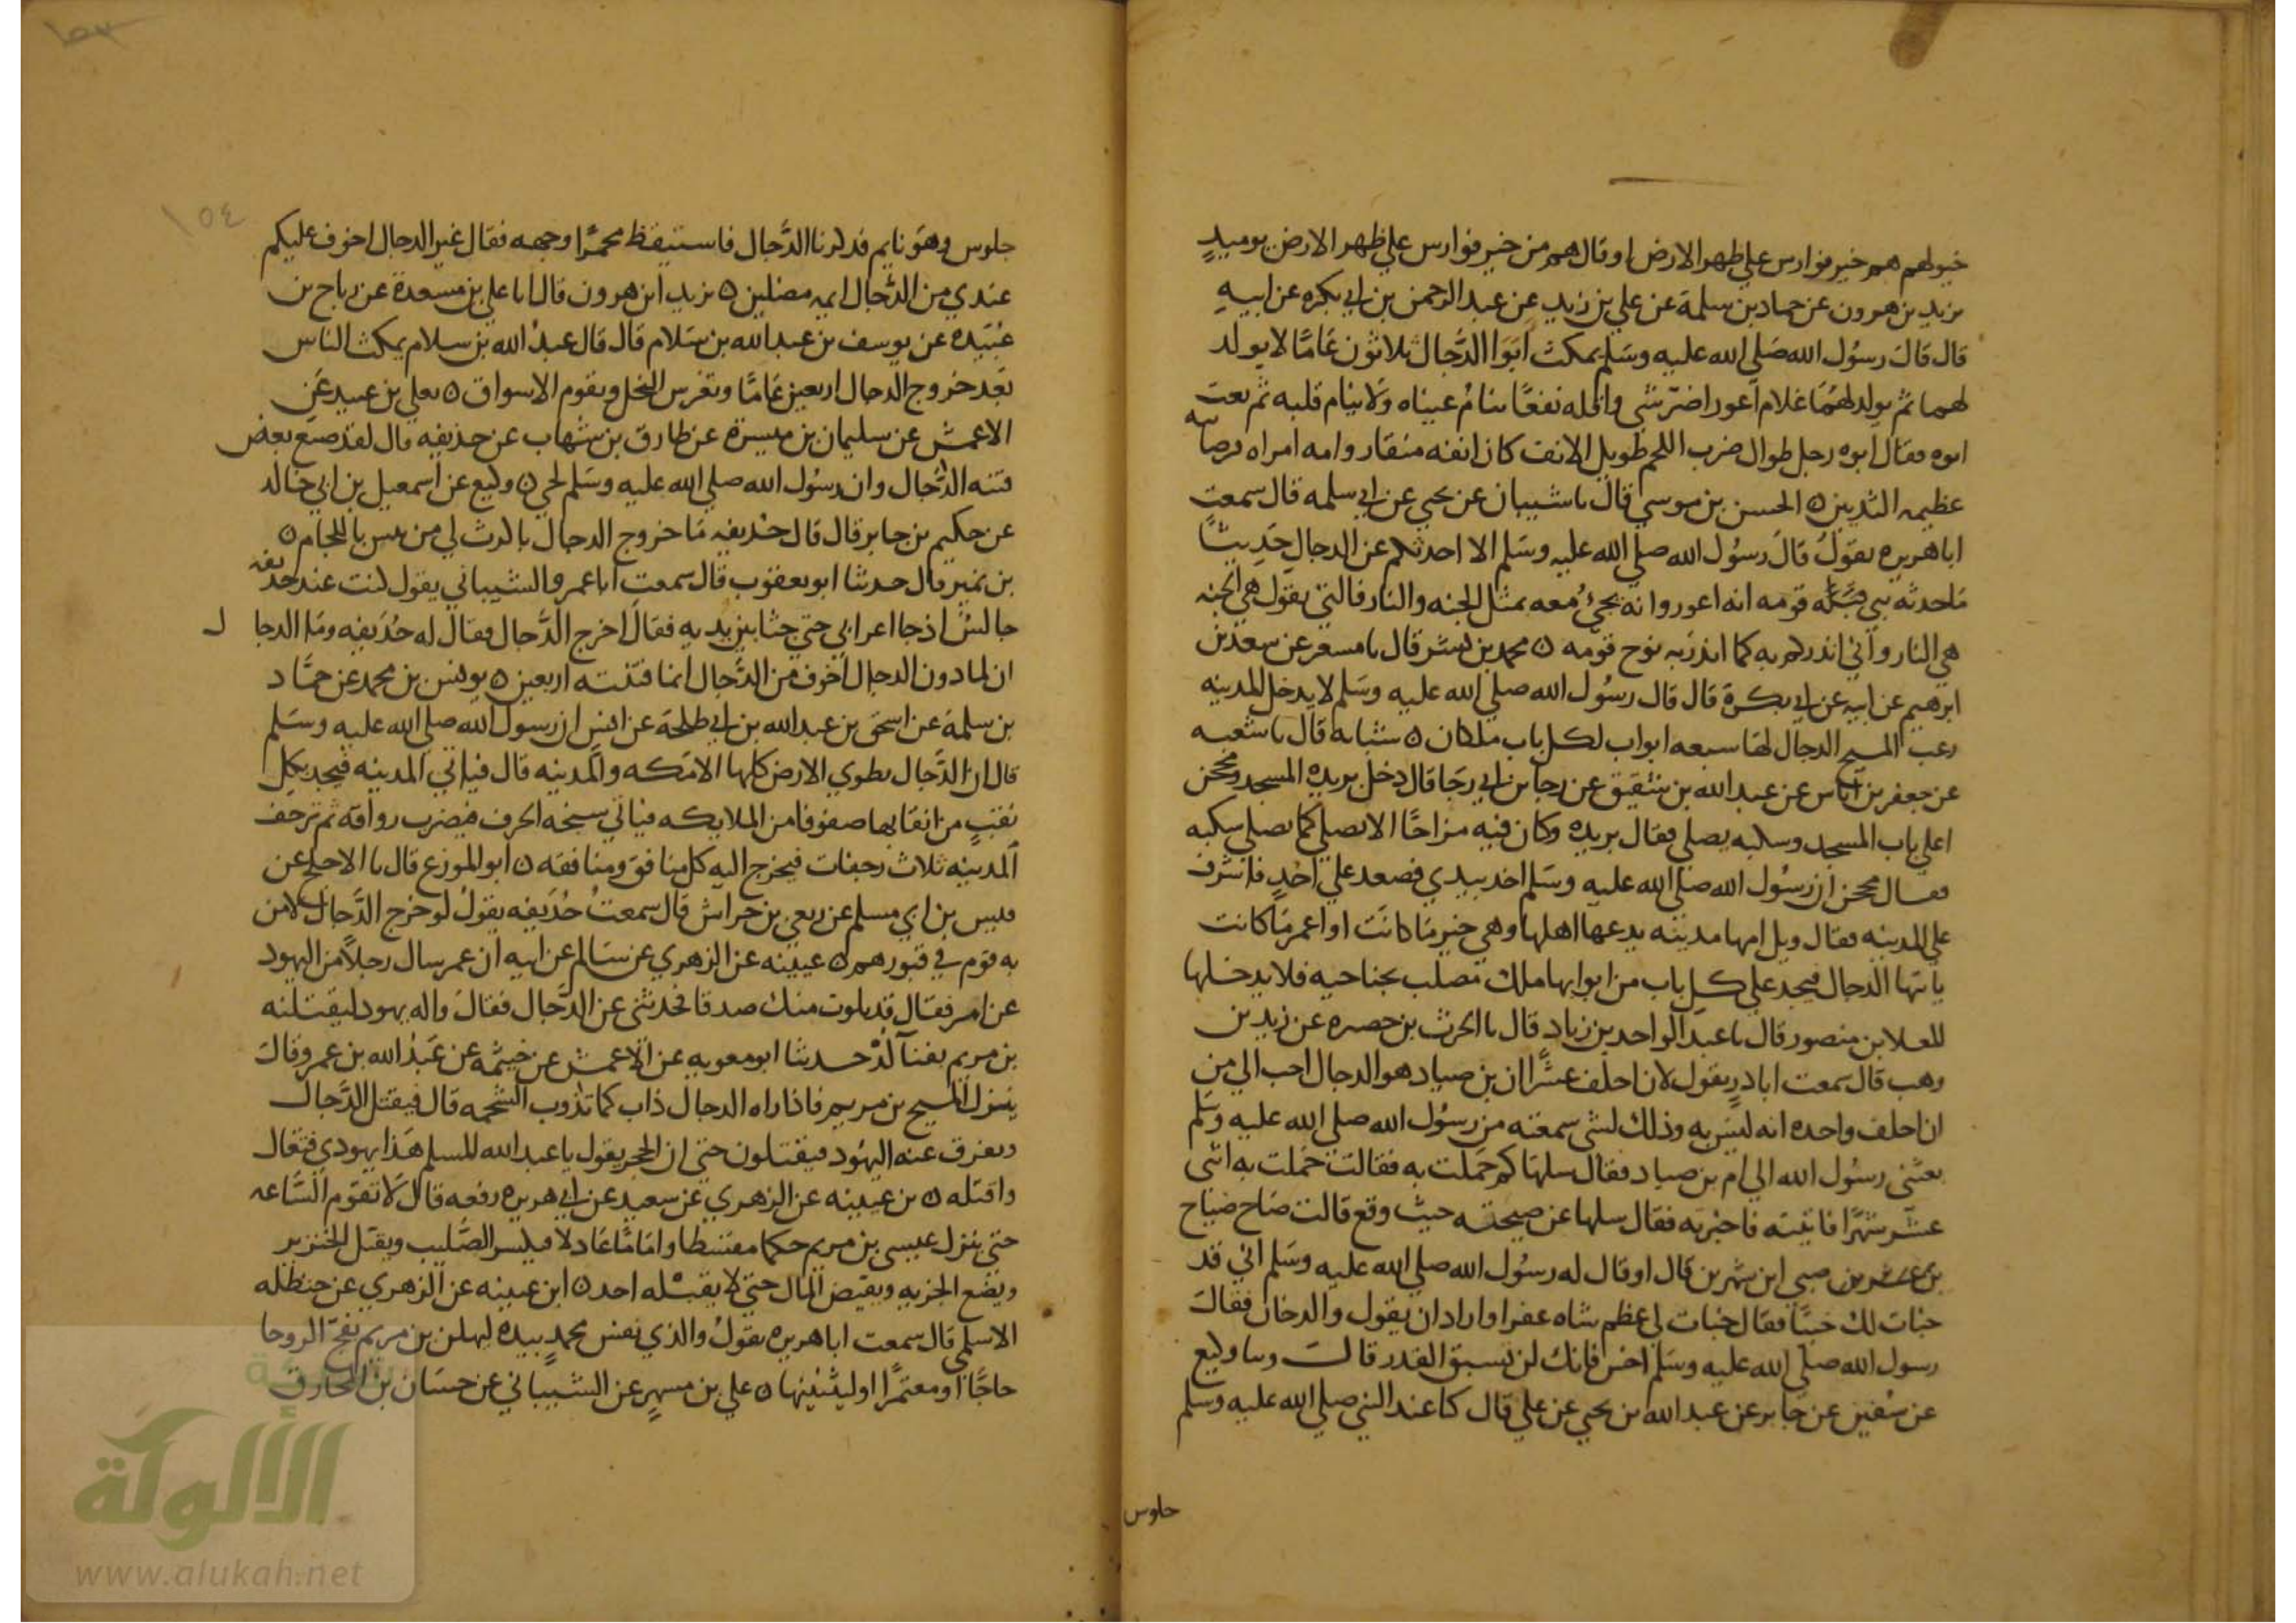 خيولهم هم خير فوارس علي ظهر الارض او قال هم من خير فوارس علي ظهر الارض يوميذٍ
يزيد بن هرون عن حماد بن سلمة عن علي بن زيد عن عبد الرحمن بن ابي بكره عن ابيه
قال قال رسول الله صلي الله عليه وسلم يمكث ابوا الدجال ثلاثون عامًا لا يولد
لهما ثم يولد لهما غلام اعور اضر شي واقله نفعًا تنام عيناه ولا ينام قلبه ثم نعت
ابوه فقال ابوه رجل طوال ضرب اللحم طويل الانف كان انفه منقار وامه امراه فرضاخيه
عظيمه الثديين ٥ الحسن بن موسي قال نا شيبان عن يحيي عن ابي سلمه قال سمعت
ابا هريره يقول قال رسول الله صلي الله عليه وسلم الا احدثكم عن الدجال حديثًا
ما حدثه نبي قبله قومه انه اعور وانه يجيء معه بمثل الجنه والنار فالتي يقول هي الجنه
هي النار واني انذركم به كما انذر به نوح قومه ٥ محمد بن بشر قال نا مسعر عن سعد بن
ابرهيم عن ابيه عن ابي بكرة قال قال رسول الله صلي الله عليه وسلم لا يدخل المدينه
رعب المسيح الدجال لها سبعه ابواب لكل باب ملكان ٥ شبابه قال نا شعبه
عن جعفر بن اياس عن عبد الله بن شقيق عن رجا بن ابي رجا قال دخل بريده المسجد ومحجن
اعلي باب المسجد وسكبه يصلي فقال بريده وكان فيه مزاحًا الا تصلي كما يصلي سكبه
فقال محجن ان رسول الله صلي الله عليه وسلم اخذ بيدي فصعد علي احُدٍ فاشرف
علي المدينه فقال ويل امها مدينه يدعها اهلها وهي خير ما كانت او اعمر ما كانت
ياتها الدجال فيجد علي كل باب من ابوابها ملك مصلب بجناحيه فلا يدخلها
المعلا بن منصور قال نا عبد الواحد بن زياد قال نا الحرث بن حصره عن زيد بن
وهب قال سمعت ابا ذرٍ يقول لان احلف عشرًا ان بن صياد هو الدجال احب الي من
ان احلف واحده انه ليس به وذلك لشي سمعته من رسول الله صلي الله عليه وسلم
بعثني رسول الله الي ام بن صياد فقال سلها كم حملت به فقالت حملت به اثنى
عشر شهرًا فاتيته فاخبرته فقال سلها عن صيحته حيث وقع قالت صاح صياح
بن صبي ابن شهرين قال او قال له رسول الله صلي الله عليه وسلم اني قد
خبات لك خبيًا فقال خبات لي عظم شاه عفرا واراد ان يقول والدخان فقال
رسول الله صلي الله عليه وسلم اخس فانك لن تسبق القدر قال وسا وكيع
عن سفين عن جابر عن عبد الله بن يحيي عن علي قال كنا عند النبي صلي الله عليه وسلم
جلوس
١٥٤
جلوس وهو نايم فذكرنا الدجال فاستيقظ محمرًا وجهه فقال غير الدجال اخوف عليكم
عندي من الدجال ايمه مضلين ٥ يزيد ابن هرون قال انا علي بن مسعدة عن رياح بن
عُبَيده عن يوسف بن عبد الله بن سلام قال قال عبد الله بن سلام يمكث الناس
بعد خروج الدجال اربعين عامًا وتغرس النخل وتقوم الاسواق ٥ يعلي بن عبيد عن
الاعمش عن سليمان بن ميسرة عن طارق بن شهاب عن حذيفه قال لقد صنع بعض
فتنه الدجال وان رسول الله صلي الله عليه وسلم لحي ٥ وكيع عن اسمعيل بن ابي خالد
عن حكيم بن جابر قال قال حذيفه ما خروج الدجال باكرث لي من تيس باللجام ٥
بن نمير قال حدثنا ابو يعفوب قال سمعت ابا عمرو الشيباني يقول كنت عند حذيفه
جالسٌ اذ جا اعرابي حتي جثا بين يديه فقال اخرج الدجال فقال له حذيفه وما الدجال
ان لما دون الدجال اخوف من الدجال انما فتنته اربعين ٥ يونس بن محمد عن حماد
بن سلمة عن اسحق بن عبد الله بن ابي طلحة عن انس ان رسول الله صلي الله عليه وسلم
قال ان الدجال يطوي الارض كلها الا مكه والمدينه قال فياتي المدينه فيجد بكل
نقبٍ من انقابها صفوفا من الملايكه فياتي سبخه الجرف فيضرب رواقه ثم ترجف
المدينه ثلاث رجفات فيخرج اليه كل منافق ومنافقه ٥ ابو المورع قال نا الاجلح عن
قيس بن ابي مسلم عن ربعي بن حراش قال سمعت حُذيفه يقول لو خرج الدجال لامن
به قوم في قبورهم ٥ عيينه عن الزهري عن سالم عن ابيه ان عمر سال رجلاً من اليهود
عن امر فقال قد بلوت منك صدقا فحدثني عن الدجال فقال واله يهود ليقتلنه
بن مريم بفنا لُدّ حدثنا ابو معويه عن الاعمش عن خيثمه عن عبد الله بن عمرو قال
ينزل المسيح بن مريم فاذا راه الدجال ذاب كما تذوب الشحمه قال فيقتل الدجال
ويفرق عنه اليهود فيقتلون حتي ان الحجر يقول يا عبد الله للمسلم هذا يهودي فتعال
واقتله ٥ بن عيينه عن الزهري عن سعيد عن ابي هريره رفعه قال لا تقوم الساعه
حتي ينزل عيسي بن مريم حكما مقسطا واماماً عادلا فيكسر الصليب ويقتل الخنزير
ويضع الجزيه ويفيض المال حتي لا يقبله احد ٥ ابن عيينه عن الزهري عن حنظله
الاسلمي قال سمعت ابا هريره يقول والذي نفس محمدٍ بيده ليهلن بن مريم بفج الروحا
حاجًا او معتمرًا او ليثنينها ٥ علي بن مسهرٍ عن الشيباني عن حسان بن المخارق
الألوكة
www.alukah.net